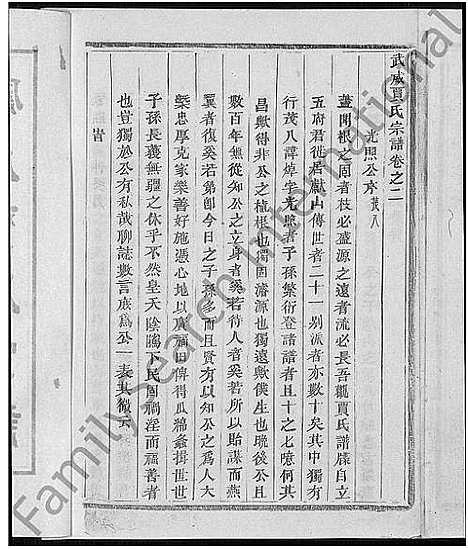 武威賈氏宗譜卷之二
光照公序 茂八
蓋聞根之固者枝必盛源之遠者流必長吾觀賈氏譜牒自立
五府君從居獻山傳世者二十一別派者亦數十矣其中獨有
行茂八諱焯字光照者子孫繁衍登諸譜者且十之七噫何其
昌歟得非公之植根也獨固濬源也獨遠歟僕生也晚後公且
數百年無從知公之立身者奚若待人者奚若所以貽謀而燕
翼者復奚若第即今日之子孫多而且賢有以知公之為人大
槩忠厚克家樂善好施憑心地以廣福田俾得瓜綿螽揖世世
子孫長義無疆之休乎不然皇天陰隲下民固禍淫而福善者
也豈獨於公有私哉聊誌數言庶為公一表其微云
皆
FamilySearch International